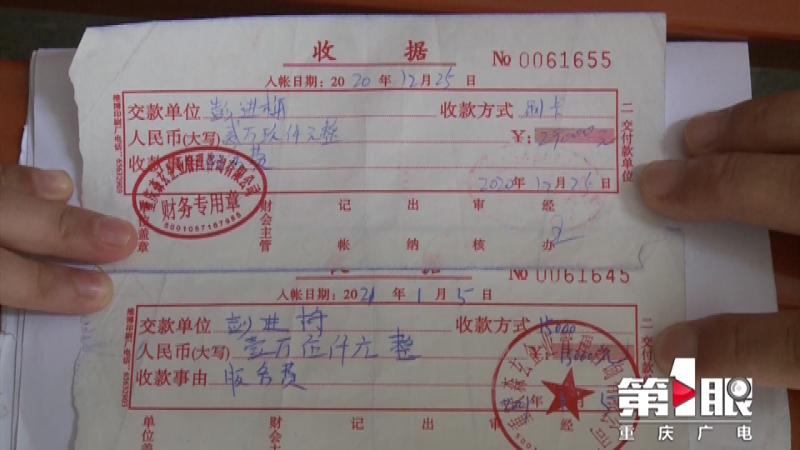 收 据 No 0061655
入帐日期：2020年12月25日
交款单位 彭进梅 收款方式 刷卡
人民币(大写) 贰万玖仟元整 ¥：29000元
收款
财务专用章
5001087187988
2020年12月25日
盖章 财会主管 记帐 出纳 审核 经办
二交付款单位
据 No 0061645
入帐日期：2021年1月5日
交款单位 彭进梅 收款方式 15000
人民币(大写) 壹万伍仟元整
收款事由 服务费
单位盖 财会主 记 出 审 经
二交付款单位
第1眼
重庆广电